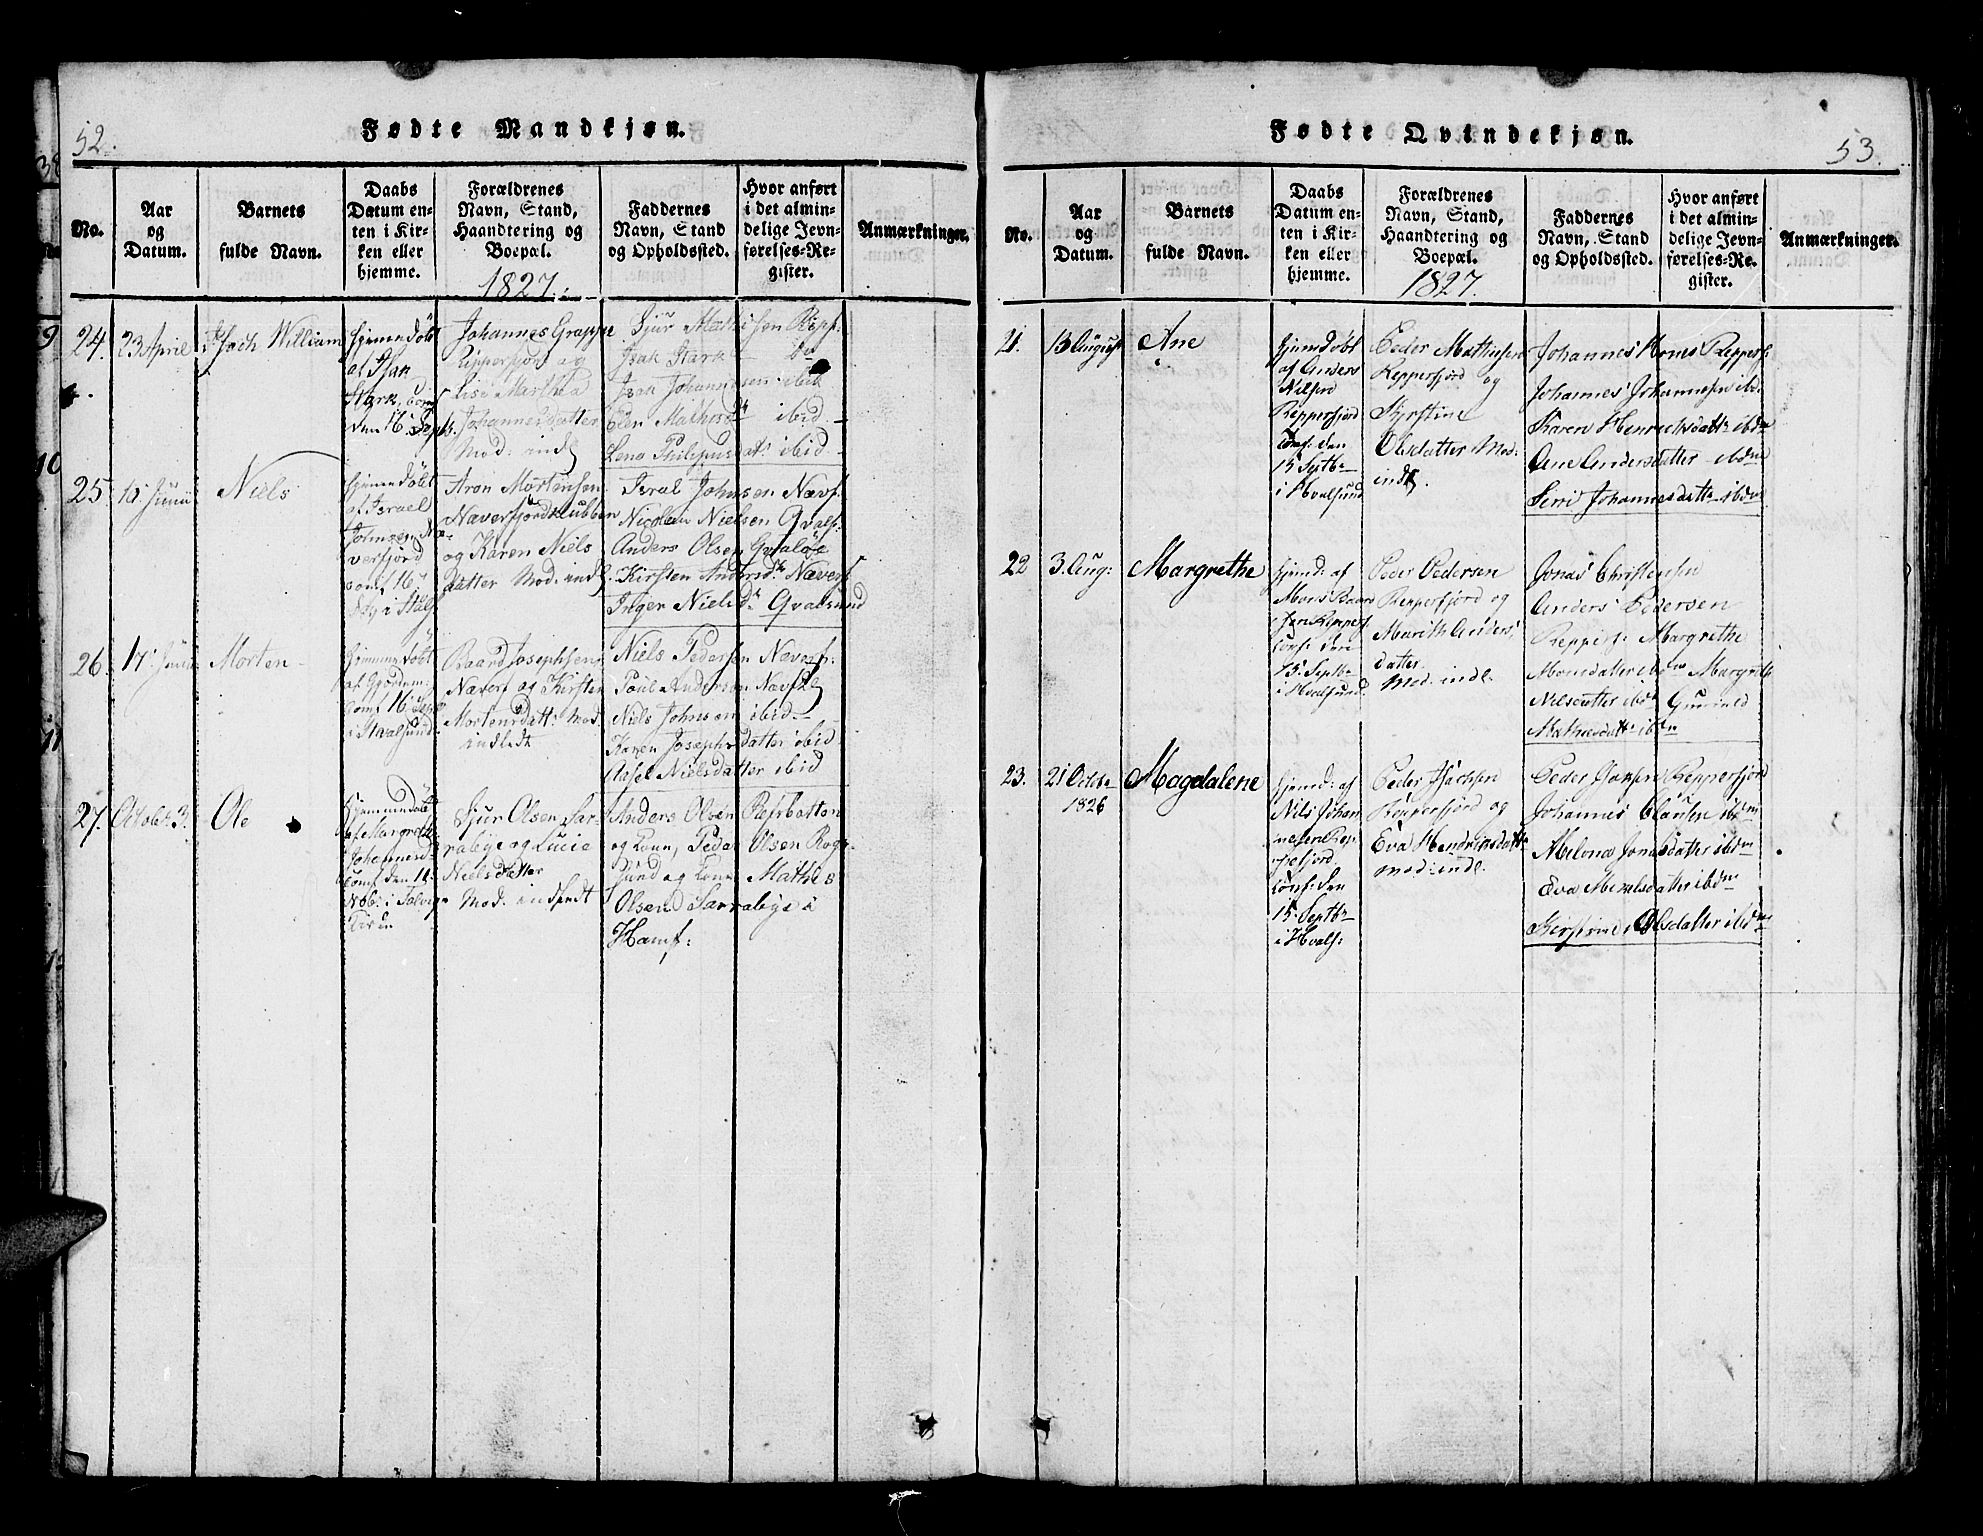 52.
Fødte Mandkjøn.
No.
Aar
og
Datum.
Barnets
fulde Navn.
Daabs
Datum en-
ten i Kir-
ken eller
hjemme.
Forældrenes
Navn, Stand,
Haandtering og
Boepæl.
1827.
Faddernes
Navn, Stand
og Opholdssted.
Hvor anført
i det almin-
delige Jevn-
førelses-Re-
gister.
Anmærkninger.
24.
23 April
Isach William
Hjemmedöbt
af Isak
Stark, conf
den 16 Sept.
Johannes Grappe
Ripperfjord og
Lise Marthea
Johannesdatter
Mod: inds
Sjur Mathisen Repf:
Isak Stark ibid
Isak Johannesen ibid
Elen Mathisd ibid
Lena Philipusdat: ibid
25.
10 Junii
Niels
Hjemmedöbt
af Israel
Johnsen Næ-
verfjord
conf 16
Aron Mortensen
Næverfjordklubben
og Karen Niels
datter Mod: inds
Isral Johnsen Nævf:
Nicolai Nielsen Qvalf:
Anders Olsen Qvaløe
Kirsten Andersd. Næverf
Inger Nielsd. Qvalsund
26.
17 Junii
Morten
Hjemmedöbt
af Gjordem:
Conf 16 Sept
i Hvalsund
Baard Josephsen
Næverf og Kirsten
Mortensdatt: Mod:
indledt
Niels Pedersen Næverf:
Poul Andersen Nævf
Niels Johnsen ibid
Karen Josephsdatter ibid
Aasel Nielsdatter ibid
27.
Octobr 3.
Ole
Hjemmedöbt
af Margreth
Johannesd:
Conf den 11
Nob: i Talvig
Sjur Olsen Sar-
rabye og Lucie
Nielsdatter
Mod: indledt
Anders Olsen Refsbotten
og Kone, Peder Olsen Rog-
sund og Kone Mathis
Olsen Sarrabye i
Hamf:
53.
Fødte Qvindekjøn.
No.
Aar
og
Datum.
Barnets
fulde Navn.
Daabs
Datum en-
ten i Kir-
ken eller
hjemme.
Forældrenes
Navn, Stand,
Haandtering og
Boepæl.
1827.
Faddernes
Navn, Stand
og Opholdssted.
Hvor anført
i det almin-
delige Jevn-
førelses-Re-
gister.
Anmærkninger.
21.
13 August
Ane
Hjemdöbt
af Anders
Nilsen
Repperfjord
Conf: den
15 Septbr
i Hvalsund
Peder Mathisen
Repperfjord og
Kjrstine
Olsdatter Mod:
inds.
Johannes Mones Repperf:
Johannes Johannesen ibdm
Karen Henrichsdattr ibdm
Ane Andersdatter ibdm
Serri Johannesdattr ibdm
22
3. Aug:
Margrethe
Hjemd: af
Mons Baard
sen Repperf.
Conf: den
15. Septbr
i Hvalsund
Peder Pedersen
Repperfjord og
Marith Anders
datter
Mod: indl.
Jonas Christensen
Anders Pedersen
Repperf: Margrethe
Monsdatter ibdm Margrete
Nilsdatter ibdm Gunild
Mathisdattr ibdm
23.
21 Octobr
1826
Magdalene
Hjemd: af
Nils Johan
nesen Rep-
perfjord,
Conf: den
15. Septbr
i Hvals:
Peder Isachsen
Repperfjord og
Eva Hendriksdattr
mod: indl.
Peder Jonsen Repperfjord
Johannes Clausen ibdm
Milona Jonasdatter ibdm
Eva Mikelsdatter ibdm
Kirstine Olsdatter ibdm